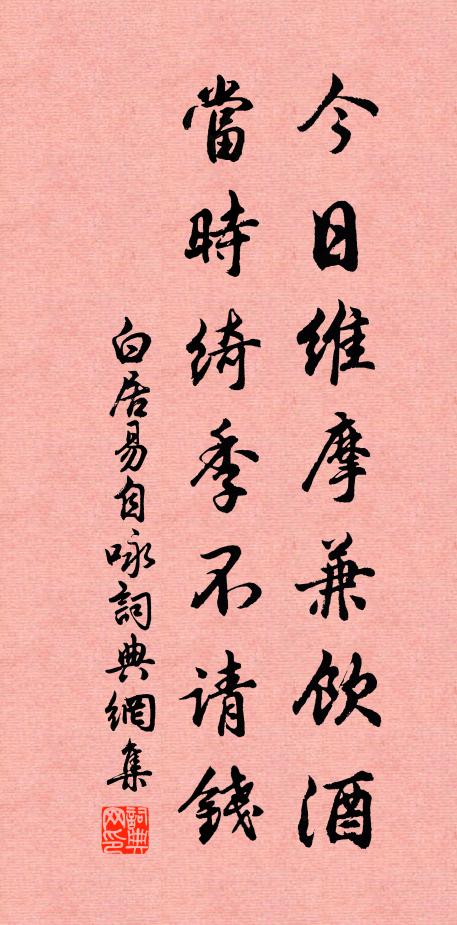 今日維摩兼飲酒
當時綺季不请錢
白居易自咏詞典網集
詞典网印